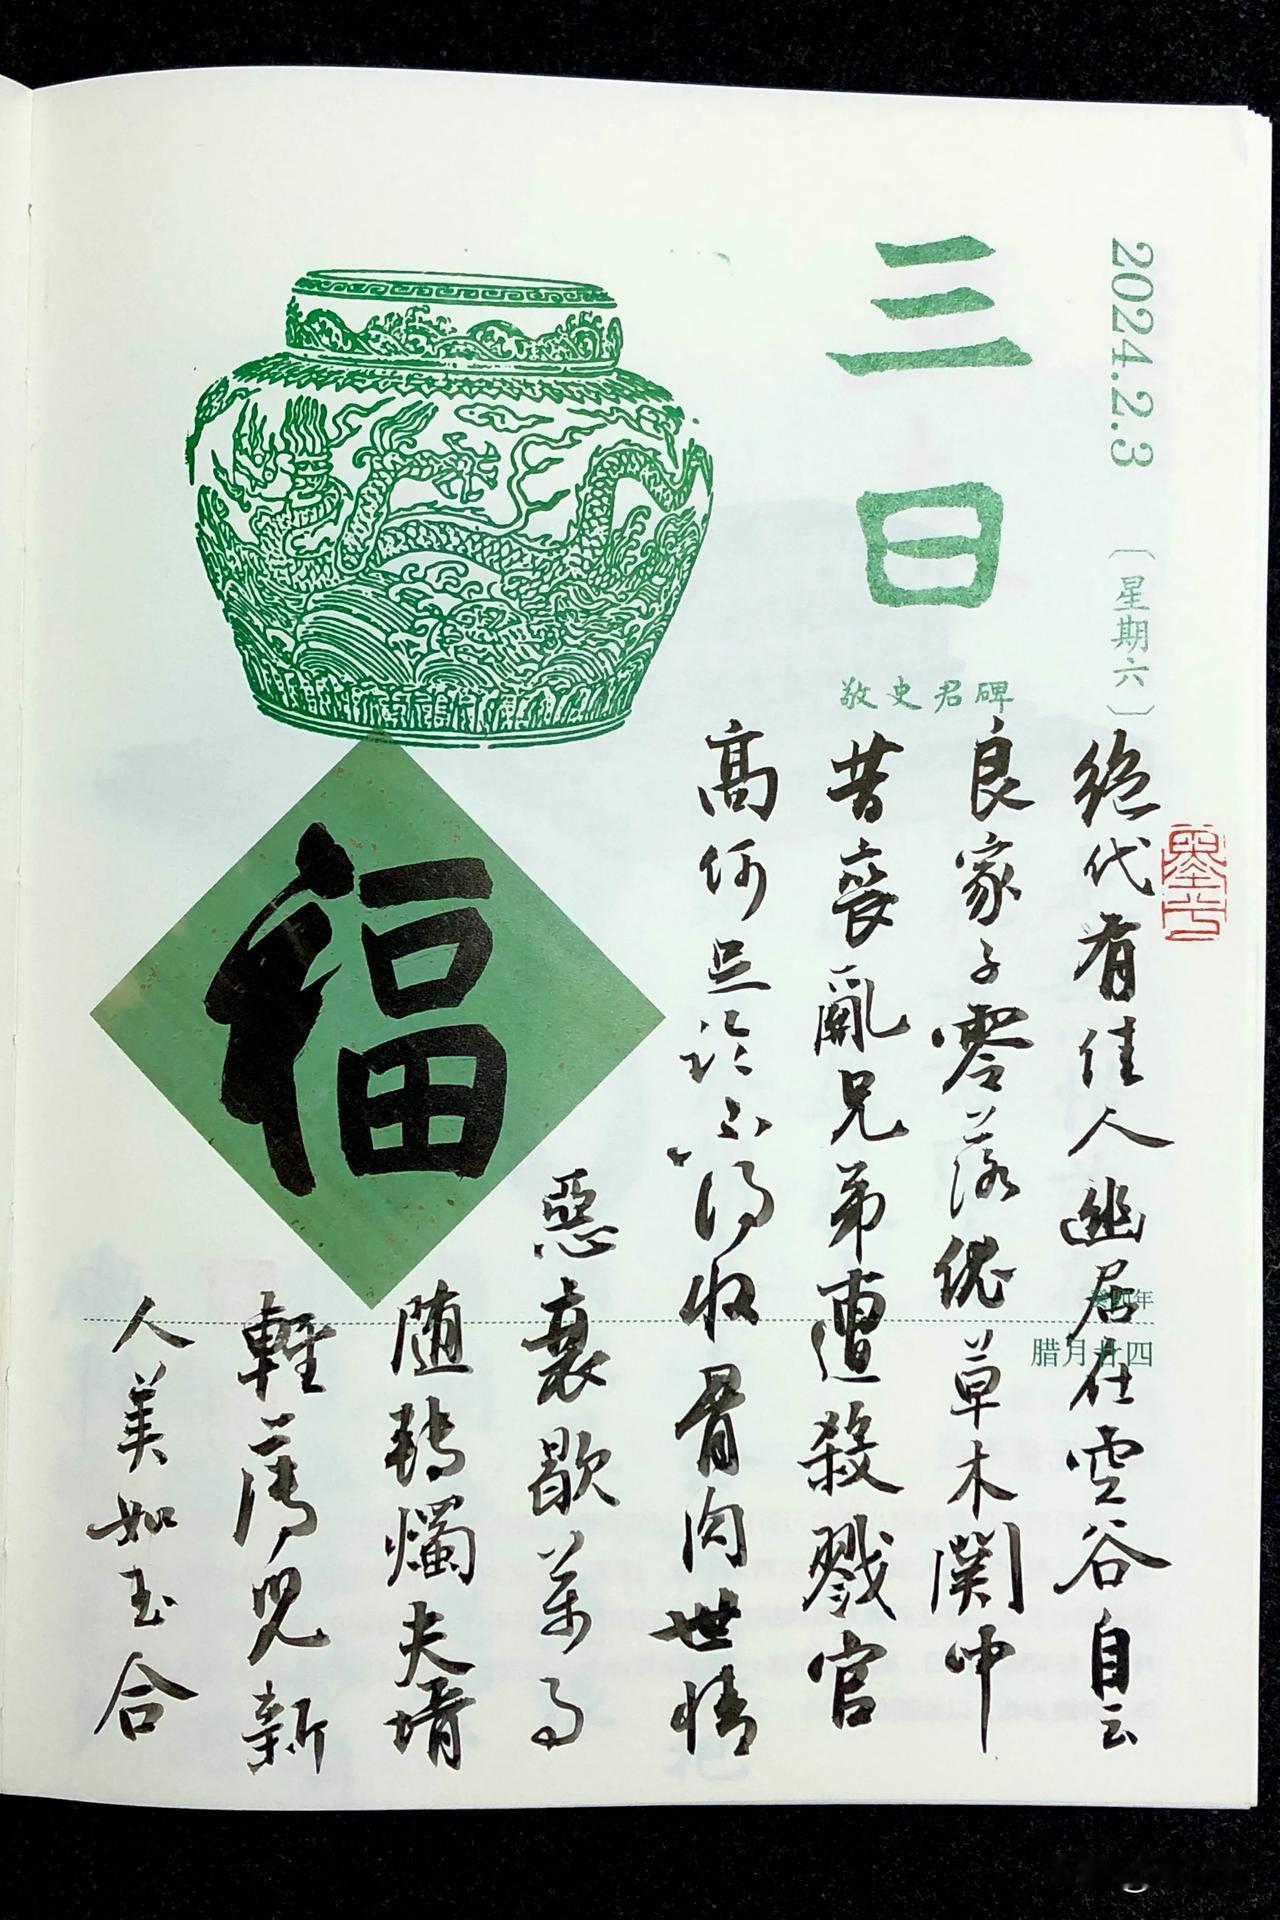 2024.2.3
〔星期六〕
三日
敬史君碑
癸卯年
腊月廿四
福
絶代有佳人幽居在空谷自云
良家子零落依草木關中
昔喪亂兄弟遭殺戮官
高何足論不得收骨肉世情
惡衰歇萬事
随轉燭夫壻
輕薄兒新
人美如玉合